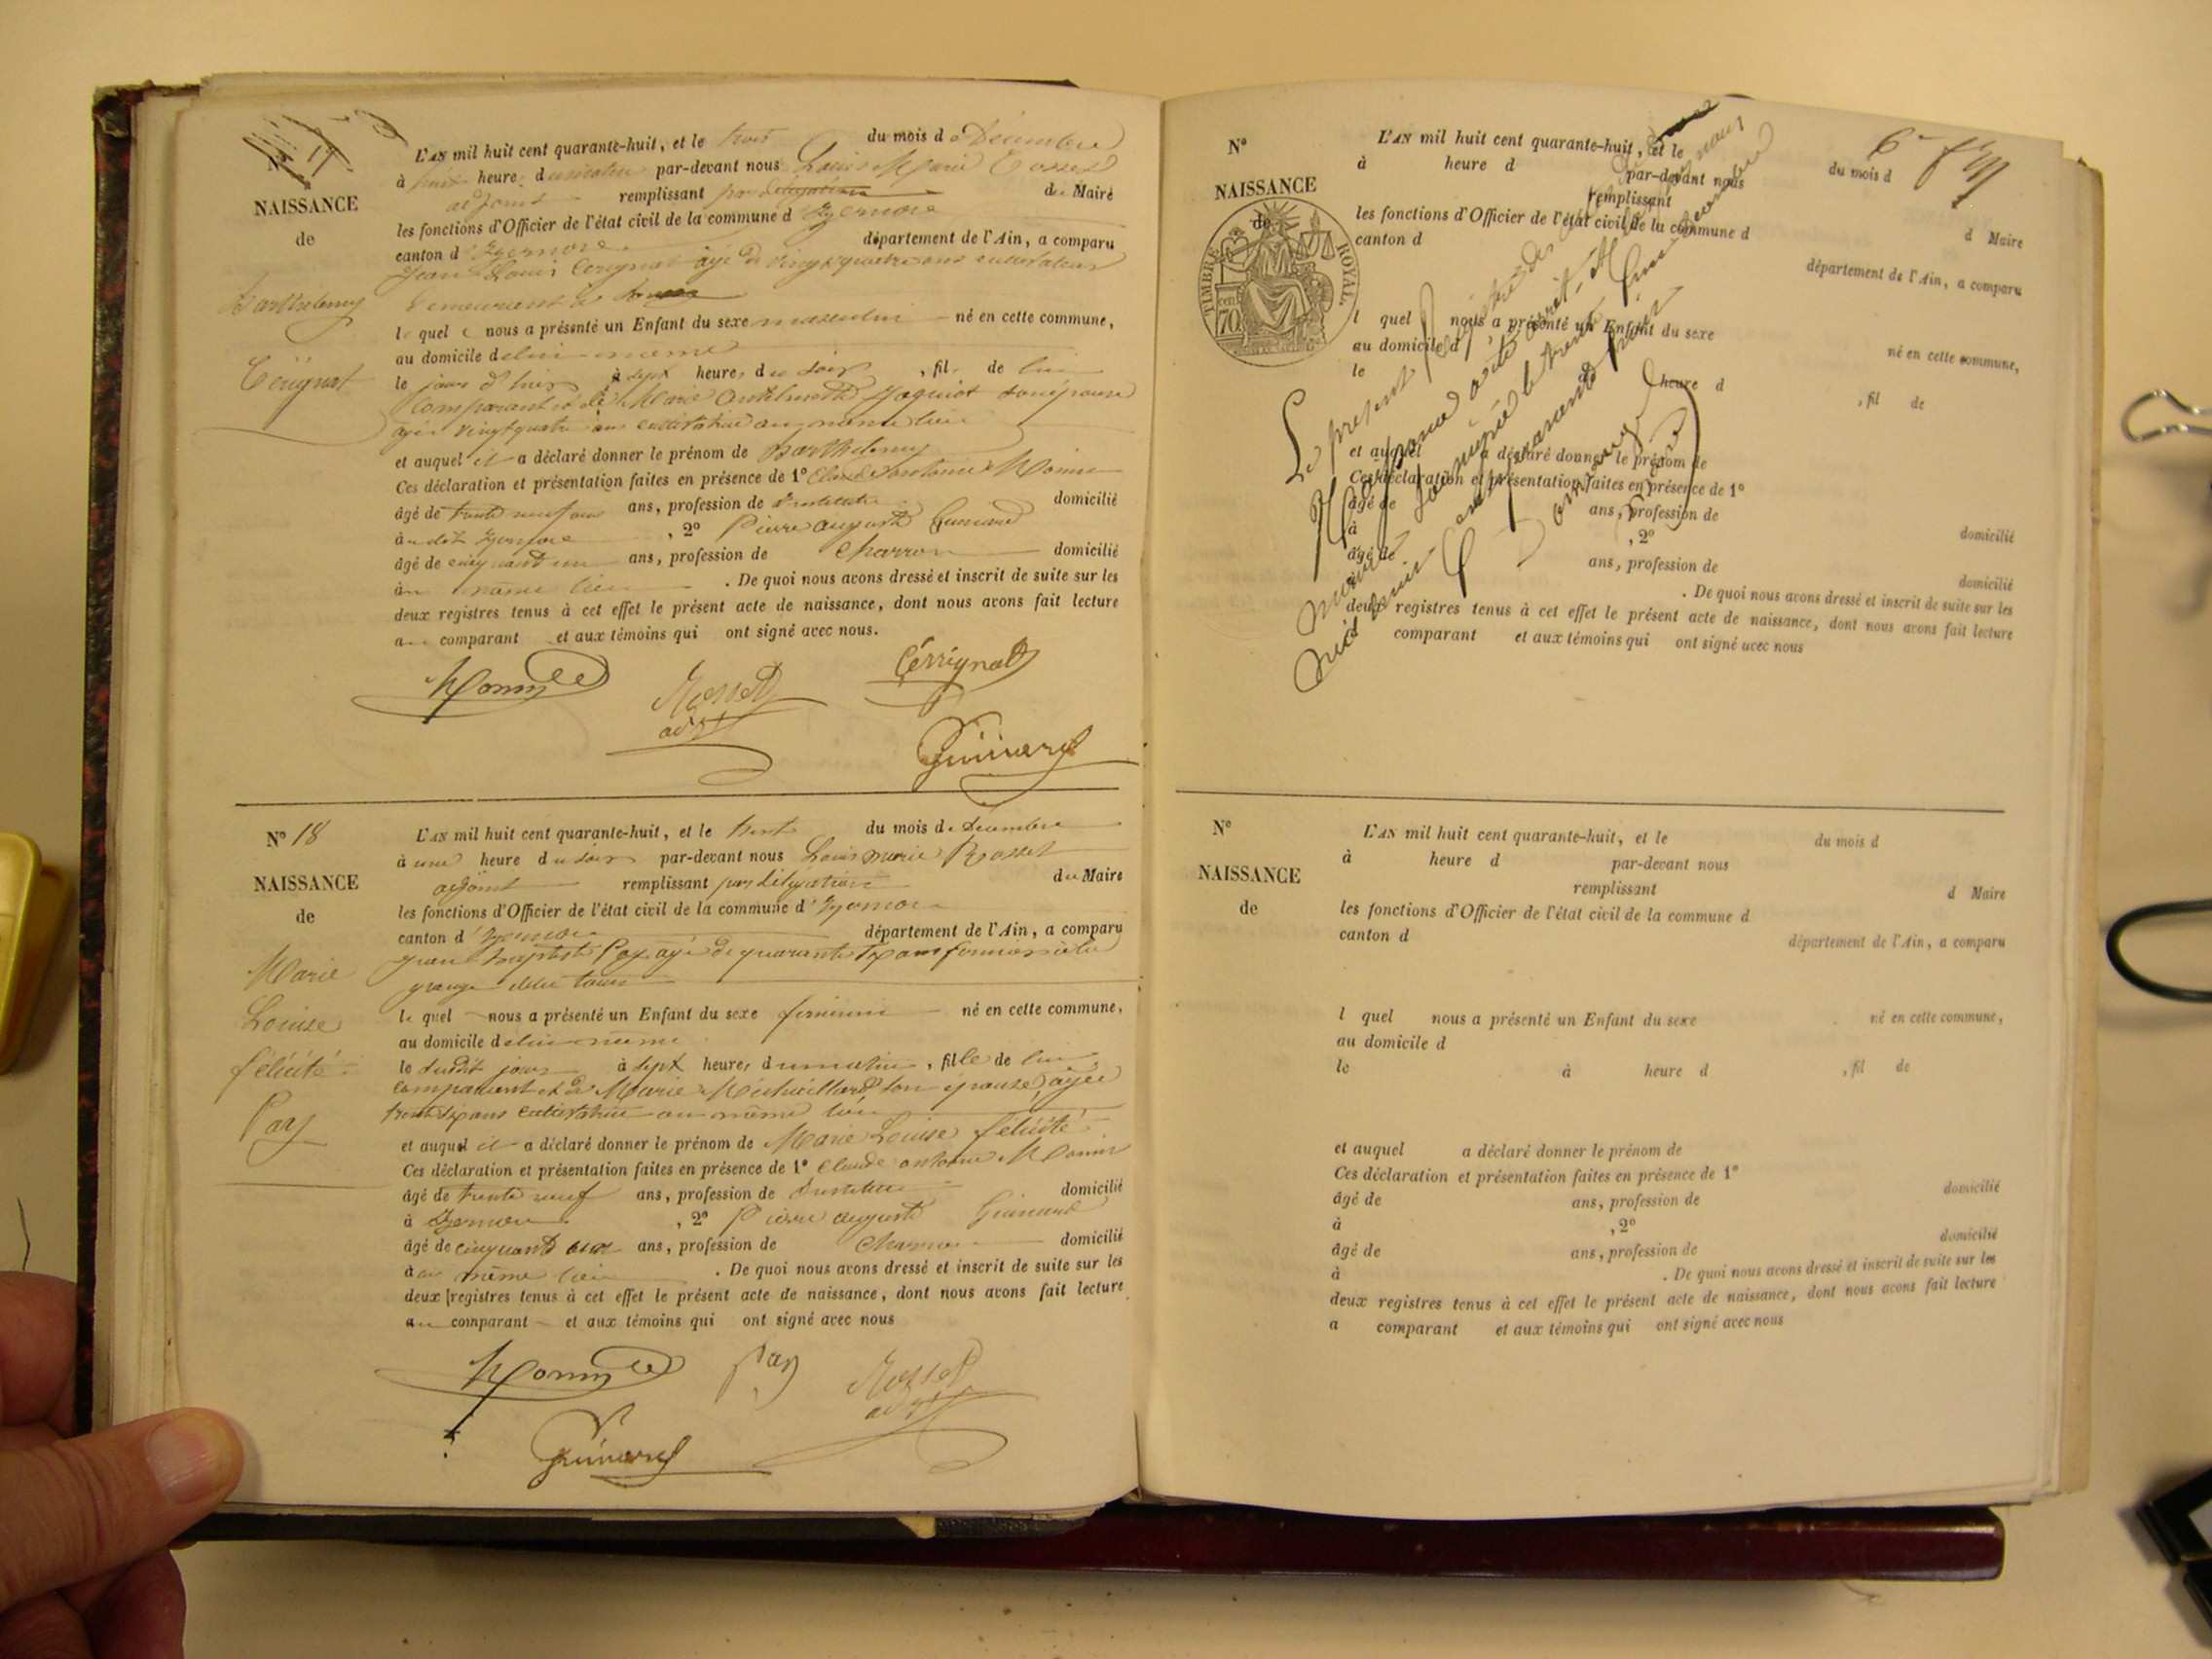 N° 17
NAISSANCE
de
Barthelemy
Cerignat
L'AN mil huit cent quarante-huit, et le trois du mois de Décembre
à huit heures du matin par-devant nous Louis Marie Rosset
adjoint remplissant par délégation du Maire
les fonctions d'Officier de l'état civil de la commune d'Izernore
canton d'Izernore département de l'Ain, a comparu
Jean Louis Cerignat âgé de vingt quatre ans cultivateur
demeurant à
lequel nous a présenté un Enfant du sexe masculin né en cette commune,
au domicile de lui même
le jour d'hier à sept heures du soir, fils de lui
comparant et de Marie son épouse
âgée vingt quatre ans cultivatrice au même lieu
et auquel il a déclaré donner le prénom de Barthelemy
Ces déclaration et présentation faites en présence de 1° Claude antoine Monin
âgé de trente neuf ans, profession de Instituteur domicilié
audit Izernore, 2° Pierre auguste Guinard
âgé de cinquante un ans, profession de charron domicilié
au même lieu. De quoi nous avons dressé et inscrit de suite sur les
deux registres tenus à cet effet le présent acte de naissance, dont nous avons fait lecture
au comparant et aux témoins qui ont signé avec nous.
Monin Rosset Cérrignat
adj
Guinard
N° 18
NAISSANCE
de
Marie
Louise
félicité
Pay
L'AN mil huit cent quarante-huit, et le trente du mois de decembre
à une heure du soir par-devant nous Louis marie Rosset
adjoint remplissant par délégation du Maire
les fonctions d'Officier de l'état civil de la commune d'Izernore
canton d'Izernore département de l'Ain, a comparu
Jean baptiste Pay âgé de quarante six ans fermier à la
grange de la tour
lequel nous a présenté un Enfant du sexe feminin né en cette commune,
au domicile de lui même
le dudit jour à sept heures du matin, fille de lui
comparant et de Marie son épouse, âgée
trente six ans cultivatrice au même lieu
et auquel il a déclaré donner le prénom de Marie Louise félicité
Ces déclaration et présentation faites en présence de 1° Claude antoine Monin
âgé de trente neuf ans, profession de Instituteur domicilié
à Izernore, 2° Pierre auguste Guinard
âgé de cinquante ans, profession de charron domicilié
à au même lieu. De quoi nous avons dressé et inscrit de suite sur les
deux registres tenus à cet effet le présent acte de naissance, dont nous avons fait lecture
au comparant et aux témoins qui ont signé avec nous
Monin Pay Rosset
adj
Guinard
N°
NAISSANCE
de
TIMBRE ROYAL
70 cent
L'AN mil huit cent quarante-huit, et le du mois d
à heure d par-devant nous
remplissant d Maire
les fonctions d'Officier de l'état civil de la commune d
canton d département de l'Ain, a comparu
l quel nous a présenté un Enfant du sexe né en cette commune,
au domicile d
le à heure d , fil de
et auquel a déclaré donner le prénom de
Ces déclaration et présentation faites en présence de 1°
âgé de ans, profession de domicilié
à , 2°
âgé de ans, profession de domicilié
. De quoi nous avons dressé et inscrit de suite sur les
deux registres tenus à cet effet le présent acte de naissance, dont nous avons fait lecture
comparant et aux témoins qui ont signé avec nous
Le présent registre des
maire le trente Decembre
mil huit cent quarante huit
N°
NAISSANCE
de
L'AN mil huit cent quarante-huit, et le du mois d
à heure d par-devant nous
remplissant d Maire
les fonctions d'Officier de l'état civil de la commune d
canton d département de l'Ain, a comparu
l quel nous a présenté un Enfant du sexe né en cette commune,
au domicile d
le à heure d , fil de
et auquel a déclaré donner le prénom de
Ces déclaration et présentation faites en présence de 1°
âgé de ans, profession de domicilié
à , 2°
âgé de ans, profession de domicilié
à . De quoi nous avons dressé et inscrit de suite sur les
deux registres tenus à cet effet le présent acte de naissance, dont nous avons fait lecture
a comparant et aux témoins qui ont signé avec nous